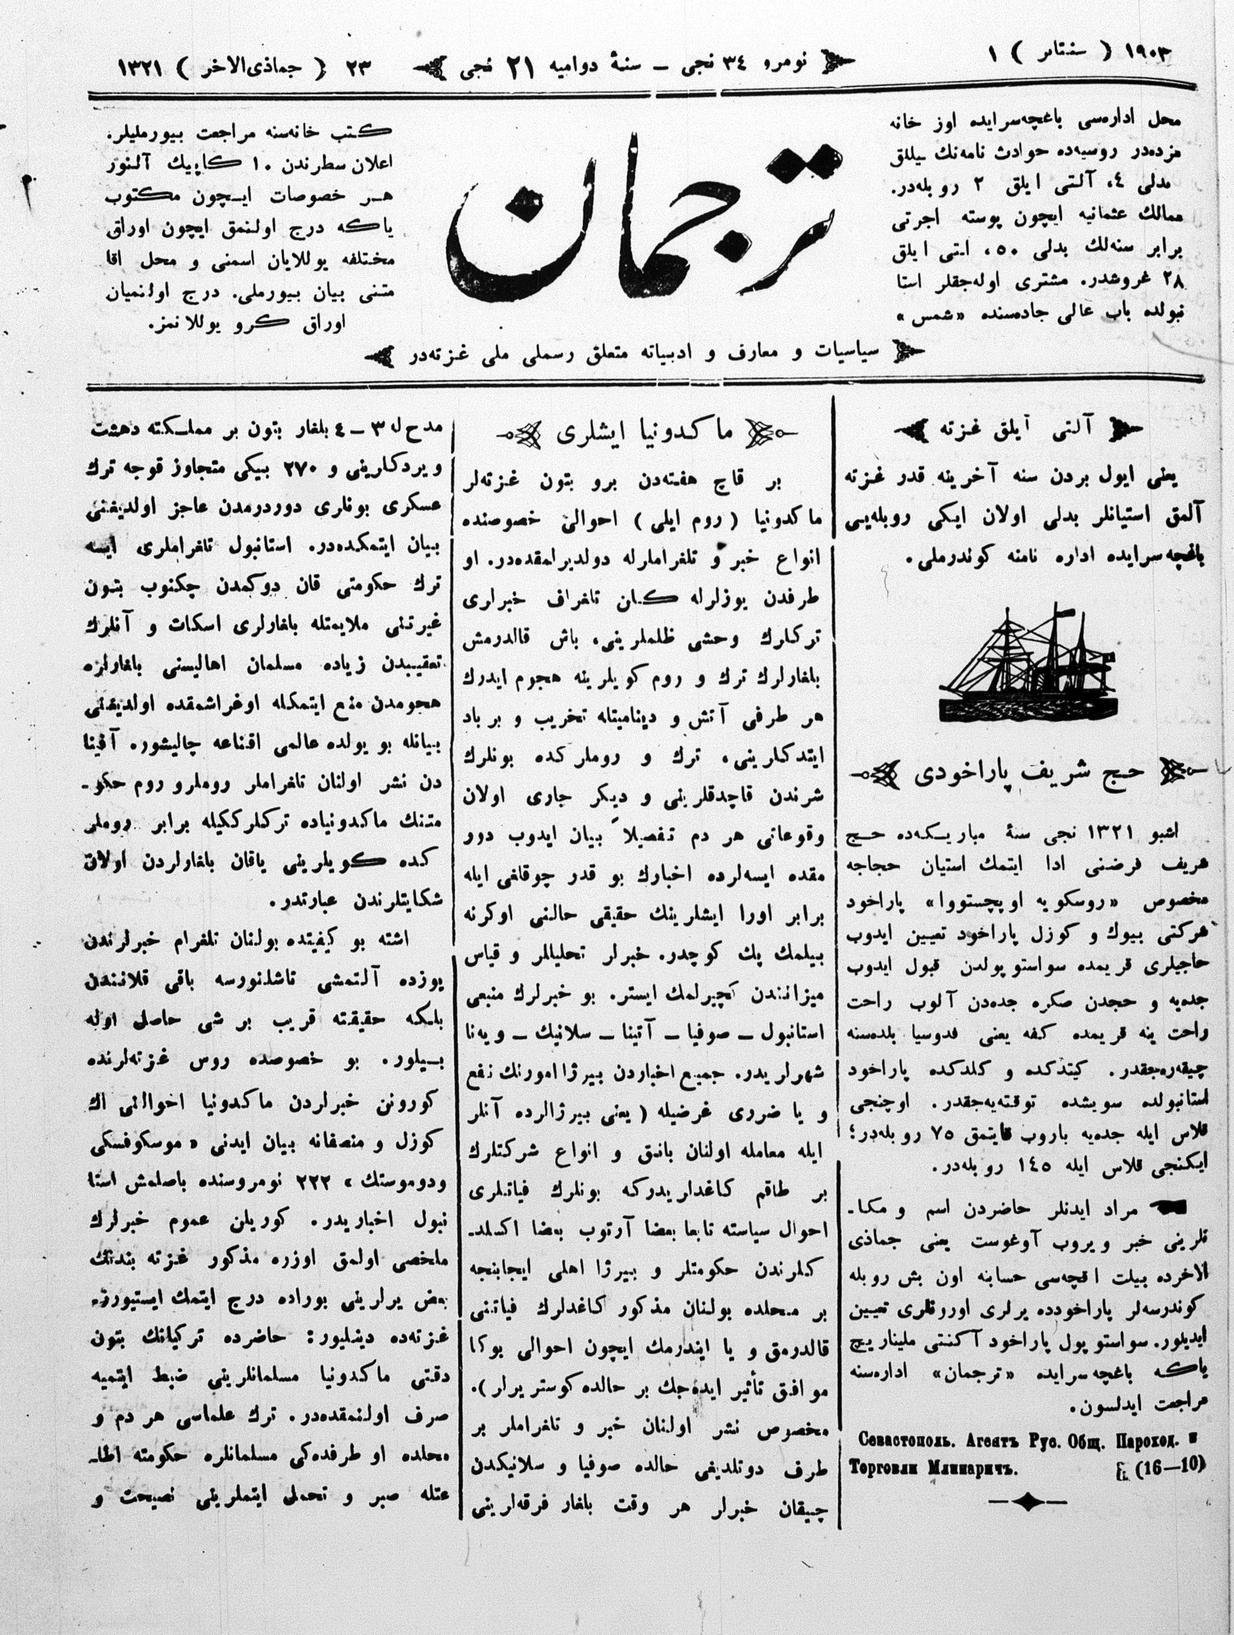 ١٩٠٣ ( سنتابر ) ١
نومرو ٣٤ نجی — سنۀ دوامیه ٢١ نجی
٢٣ ( جماذی‌الاخر ) ١٣٢١
محل اداره‌سی باغچه‌سرایده اوز خانه
مزده‌در روسیه‌ده حوادث نامه‌نك ییللق
بدلی ٤، آلتی ایلق ٢ روبله‌در.
ممالك عثمانیه ایچون پوسته اجرتی
برابر سنه‌لك بدلی ٥٠، ایتی ایلق
٢٨ غروشدر. مشتری اوله‌جقلر استا
نبولده باب عالی جاده‌سنده «شمس»
ترجمان
كتب خانه‌سنه مراجعت بیورملیلر.
اعلان سطرندن ١٠ كاپیك آلنور
هر خصوصات ایچون مكتوب
یاكه درج اولنمق ایچون اوراق
مختلفه یوللایان اسمنی و محل اقا
متنی بیان بیورملی. درج اولنمیان
اوراق كرو یوللانمز.
سیاسیات و معارف و ادبیاته متعلق رسملی ملی غزته‌در
آلتی آیلق غزته
یعنی ایول بردن سنه آخرینه قدر غزته
آلمق استیانلر بدلی اولان ایكی روبله‌یی
باغچه‌سرایده اداره نامنه كوندرملی.
حج شریف پاراخودی
اشبو ١٣٢١ نجی سنۀ مباركه‌ده حج
شریف فرضنی ادا ایتمك استیان حجاجه
مخصوص «روسكویه اوبچستووا» پاراخود
شركتی بیوك و كوزل پاراخود تعیین ایدوب
حاجیلری قریمده سواستوپولدن قبول ایدوب
جده‌یه و حجدن صكره جده‌دن آلوب راحت
راحت ینه قریمده كفه یعنی فدوسیا بلده‌سنه
چیقه‌ره‌جقدر. كیتدكده و كلدكده پاراخود
استانبولده سویشده توقته‌یه‌جقدر. اوچنجی
قلاس ایله جده‌یه باروب قایتمق ٧٥ روبله‌در؛
ایكنجی قلاس ایله ١٤٥ روبله‌در.
مراد ایدنلر حاضردن اسم و مكا-
نلرینی خبر ویروب آوغوست یعنی جماذی
الاخرده بیلت اقچه‌سی حسابنه اون بش روبله
كوندرسه‌لر پاراخودده یرلری اورونلری تعیین
ایدیلور. سواستوپول پاراخود آكنتی ملیناریچ
یاكه باغچه‌سرایده «ترجمان» اداره‌سنه
مراجعت ایدلسون.
Севастополь. Агентъ Рус. Общ. Пароход. и
Торговли Млинаричъ. (16—10)
ماكدونیا ایشلری
بر قاچ هفته‌دن برو بتون غزته‌لر
ماكدونیا (روم ایلی) احوالی خصوصنده
انواع خبر و تلغراملرله دولدیرلمقده‌در. او
طرفدن یوزلرله كلن تلغراف خبرلری
تركلرك وحشی ظلملرینی، باش قالدرمش
بلغارلرك ترك و روم كویلرینه هجوم ایدرك
هر طرفی آتش و دینامیتله تخریب و برباد
ایتدكلرینی، ترك و روملركده بونلرك
شرندن قاچدقلرینی و دیكر جاری اولان
وقوعاتی هر دم تفصیلاً بیان ایدوب دور
مقده ایسه‌لرده اخبارك بو قدر چوقلغی ایله
برابر اورا ایشلرینك حقیقی حالنی اوكرنه
بیلمك پك كوچدر. خبرلر تحلیللر و قیاس
میزانندن كچیرلمك ایستر. بو خبرلرك منبعی
استانبول — صوفیا — آتینا — سلانیك — ویه‌نا
شهرلریدر. جمیع اخباردن بیرژا امورنك نفع
و یا ضرری غرضیله (یعنی بیرژالرده آنلر
ایله معامله اولنان بانق و انواع شركتلرك
بر طاقم كاغداریدركه بونلرك فیاتلری
احوال سیاسته تابعا بعضا آرتوب بعضا اكسلد-
كلرندن حكومتلر و بیرژا اهلی ایجابنجه
بر محلده بولنان مذكور كاغدلرك فیاتنی
قالدرمق و یا ایندرمك ایچون احوالی یوكا
موافق تأثیر ایده‌جك بر حالده كوستریرلر).
مخصوص نشر اولنان خبر و تلغراملر بر
طرف دوتلدیغی حالده صوفیا و سلانیكدن
چیقان خبرلر هر وقت بلغار فرقه‌لرینی
مدح له ٣—٤ بلغار بتون بر مملكته دهشت
ویردكلرینی و ٢٧٠ بیكی متجاوز قوجه ترك
عسكری بونلری دوردرمدن عاجز اولدیغنی
بیان ایتمكده‌در. استانبول تلغراملری ایسه
ترك حكومتی قان دوكمدن چكنوب بتون
غیرتنی ملایمتله بلغارلری اسكات و آنلرك
تعقیبندن زیاده مسلمان اهالیسنی بلغارلره
هجومدن منع ایتمكله اوغراشمقده اولدیغنی
بیانله بو یولده عالمی اقناعه چالیشور. آتینا
دن نشر اولنان تلغراملر روملرو روم حكو-
متنك ماكدونیاده تركلركیله برابر روملر
كده كویلرینی یاقان بلغاولردن اولان
شكایتلرندن عبارتدر.
اشته بو كیفیتده بولنان تلغرام خبرلرندن
یوزده آلتمشی تاشلنورسه باقی قلانندن
بلكه حقیقته قریب بر شی حاصل اوله
بیلور. بو خصوصده روس غزته‌لرنده
كورونن خبرلردن ماكدونیا احوالنی اك
كوزل و منصفانه بیان ایدنی «موسكوفسكی
ودوموستك» ٢٢٢ نومروسنده باصلمش استا
نبول اخباریدر. كوریلن عموم خبرلرك
ملخصی اولمق اوزره مذكور غزته بندنك
بعض یرلرینی بوراده درج ایتمك ایستیورز.
غزته‌ده دینلیور: حاضرده تركیانك بتون
دقتی ماكدونیا مسلمانلرینی ضبط ایتمیه
صرف اولنمقده‌در. ترك علماسی هر دم و
محلده او طرفده‌كی مسلمانلره حكومته اطا-
عتله صبر و تحمل ایتملرینی نصیحت و